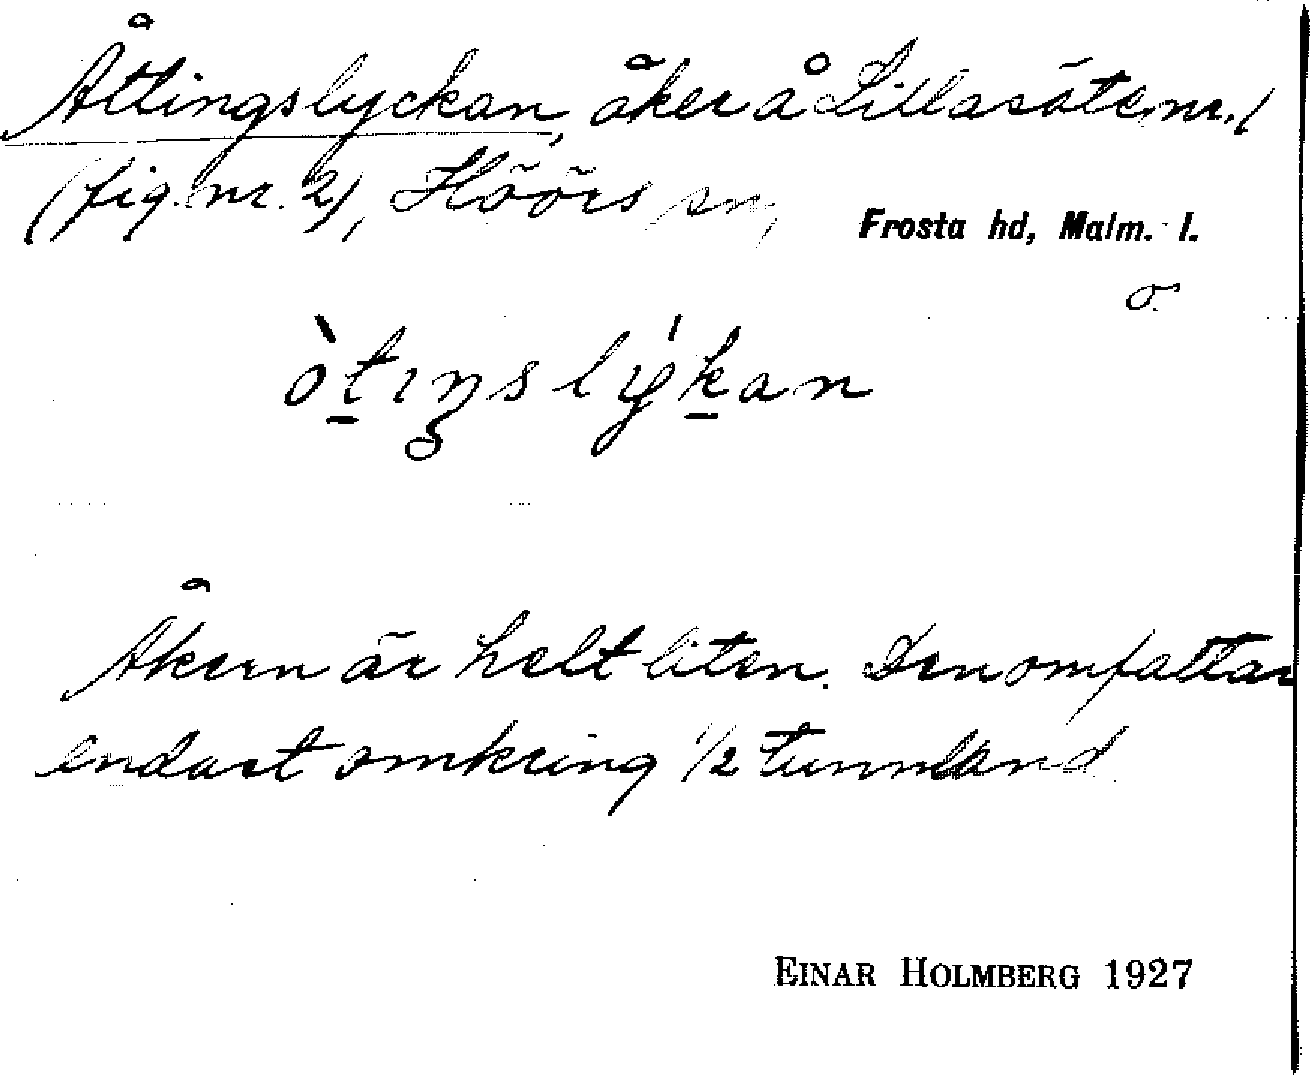 Åttingslyckan, åker å Lillasäte nr. 1
(fig. nr. 2), Höörs sn,
Frosta hd, Malm. l.
σ.
òtıŋslýkan
Åkern är helt liten. Den omfattar
endast omkring 1/2 tunnland
EINAR HOLMBERG 1927